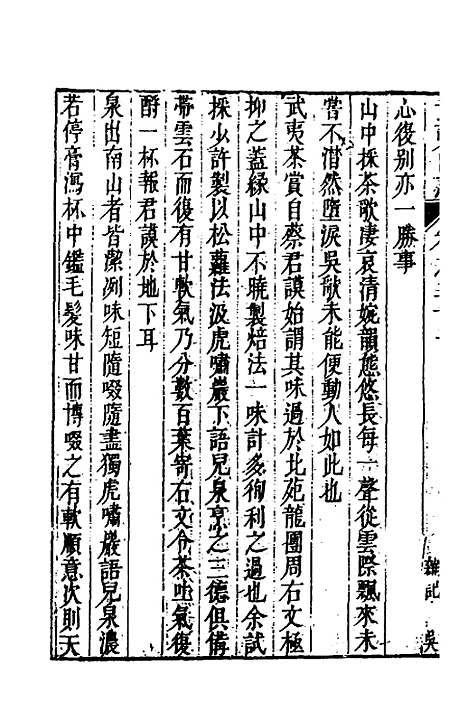 心復别亦一勝事
山中採茶歌凄哀清婉韻態悠長每一聲從雲際飄來未
嘗不潸然墮淚吳歈未能便動人如此也
武夷茶賞自蔡君謨始謂其味過於北苑龍團周右文極
抑之蓋緣山中不曉製焙法一味計多徇利之過也余試
採少許製以松蘿法汲虎嘯巖下語兒泉烹之三德俱備
帶雲石而復有甘軟氣乃分數百葉寄右文令茶吐氣復
酹一杯報君謨於地下耳
泉出南山者皆潔洌味短隨啜隨盡獨虎嘯巖語兒泉濃
若停膏瀉杯中鑑毛髮味甘而博啜之有軟順意次則天
雜記